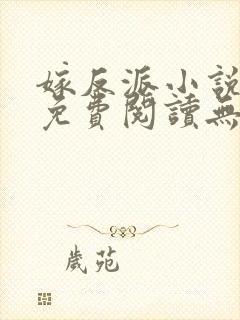 嫁反派小說
免費閱讀無
歲苑